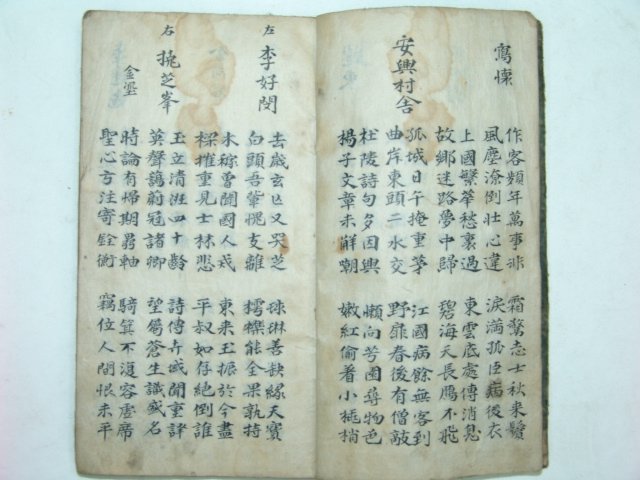 寫懷
作客頻年萬事非 霜驚志士秋來鬢
風塵潦倒壯心違 淚滿孤臣病後衣
上國繁華愁裏過 東雲底處傳消息
故鄉迷路夢中歸 碧海天長鴈不飛
安興村舍
孤城日午掩重茅 江國病餘無客到
曲岸東頭二水交 野扉春後有僧敲
杜陵詩句多因興 懶向芳園尋物色
楊子文章未解嘲 嫩紅偷着小桃梢
左 李好閔
去歲玄亡又哭芝 球琳善缺緣天寶
白頭吾輩愧支離 樗櫟能全果孰持
木稼曾聞國人戒 東來王振於今盡
樑摧重見士林悲 平叔如存絕倒誰
右 挽芝峯 金瑬
玉立清班四十齡 詩傳卉城聞重譯
英聲藹蔚冠諸卿 望屬蒼生識盛名
時論有歸期軸 騎箕不復容虛席
聖心方注寄銓衡 竊位人間恨未平